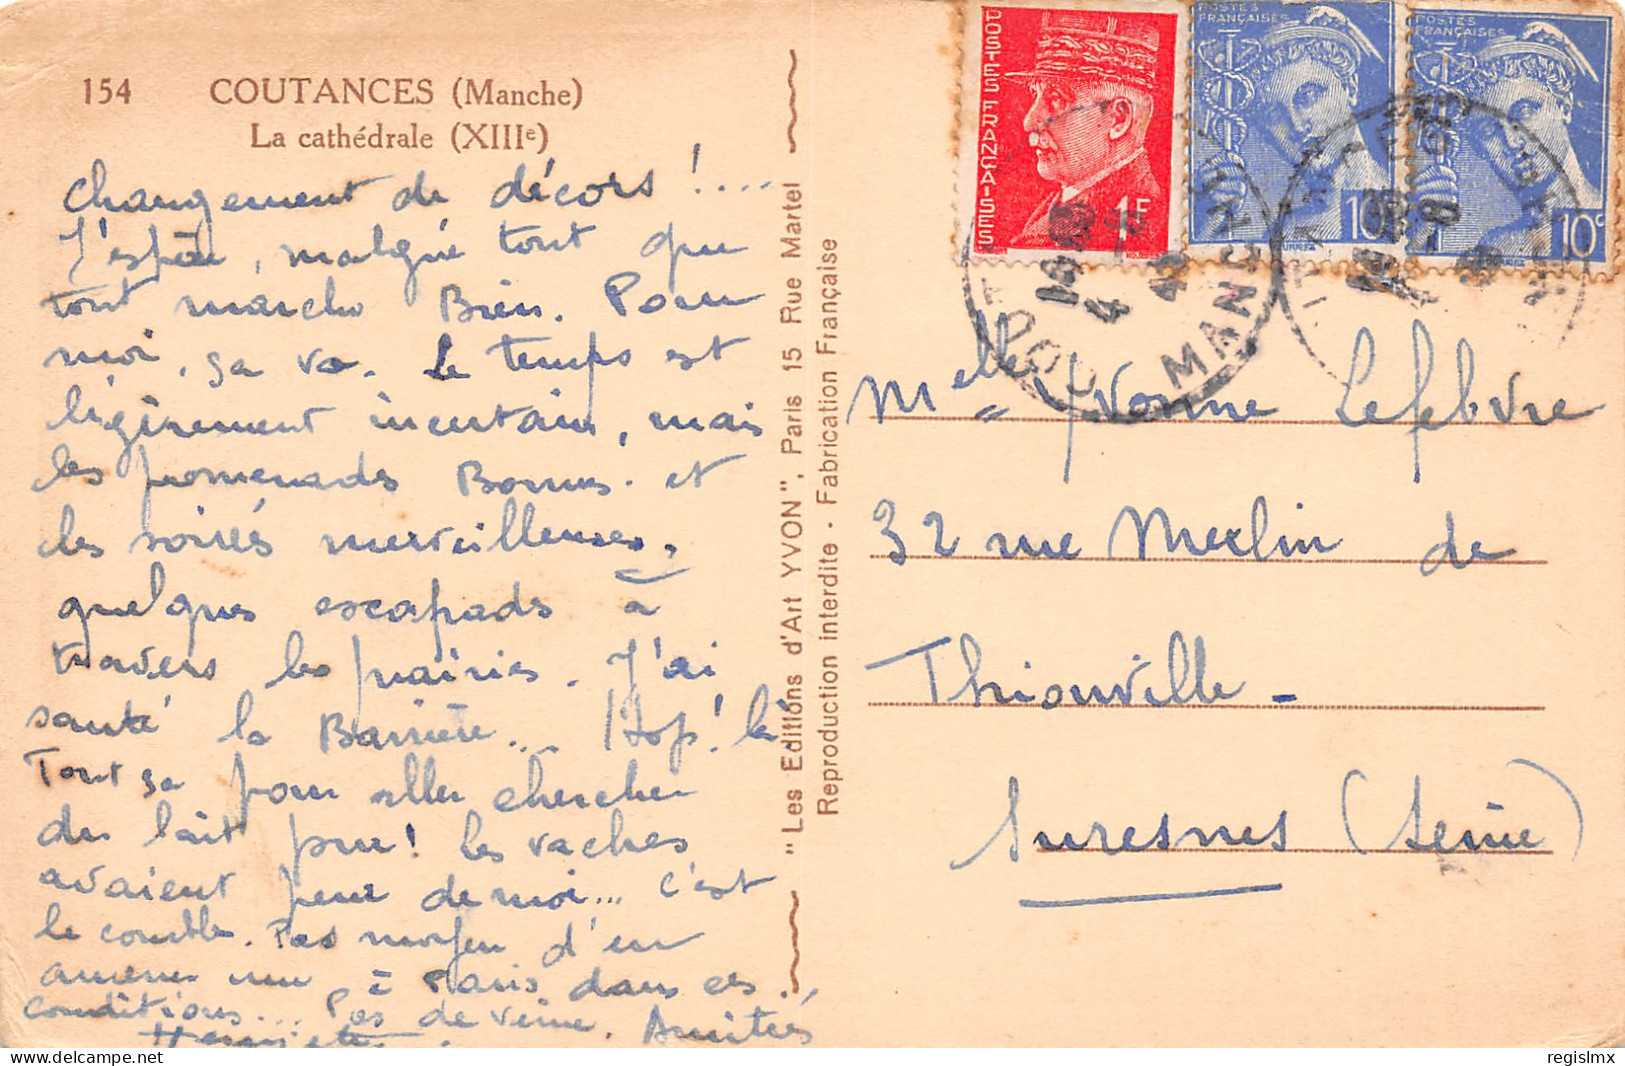 154 COUTANCES (Manche)
La cathédrale (XIIIe)
Changement de décors !....
J'espère, malgré tout que
tout marche Bien. Pour
moi, ça va. Le temps est
légèrement incertain, mais
les promenades Bonnes. et
les soirées merveilleuses,
quelques escapades à
travers les prairies. J'ai
sauté la Barrière... Hop! là
Tout ça pour aller chercher
du lait pur! Les vaches
avaient peur de moi... c'est
le comble. Pas moyen d'en
amener une à Paris dans ces
conditions... Pas de veine. Amitiés
Henriette.
"Les Editions d'Art YVON", Paris 15 Rue Martel
Reproduction interdite - Fabrication Française
POSTES FRANÇAISES
1F
POSTES
FRANÇAISES
10c
POSTES
FRANÇAISES
10c
COUTANCES
MANCHE
Melle Yvonne Lefebvre
32 rue Merlin de
Thionville -
Suresnes (Seine)
delcampe.net
regislmx